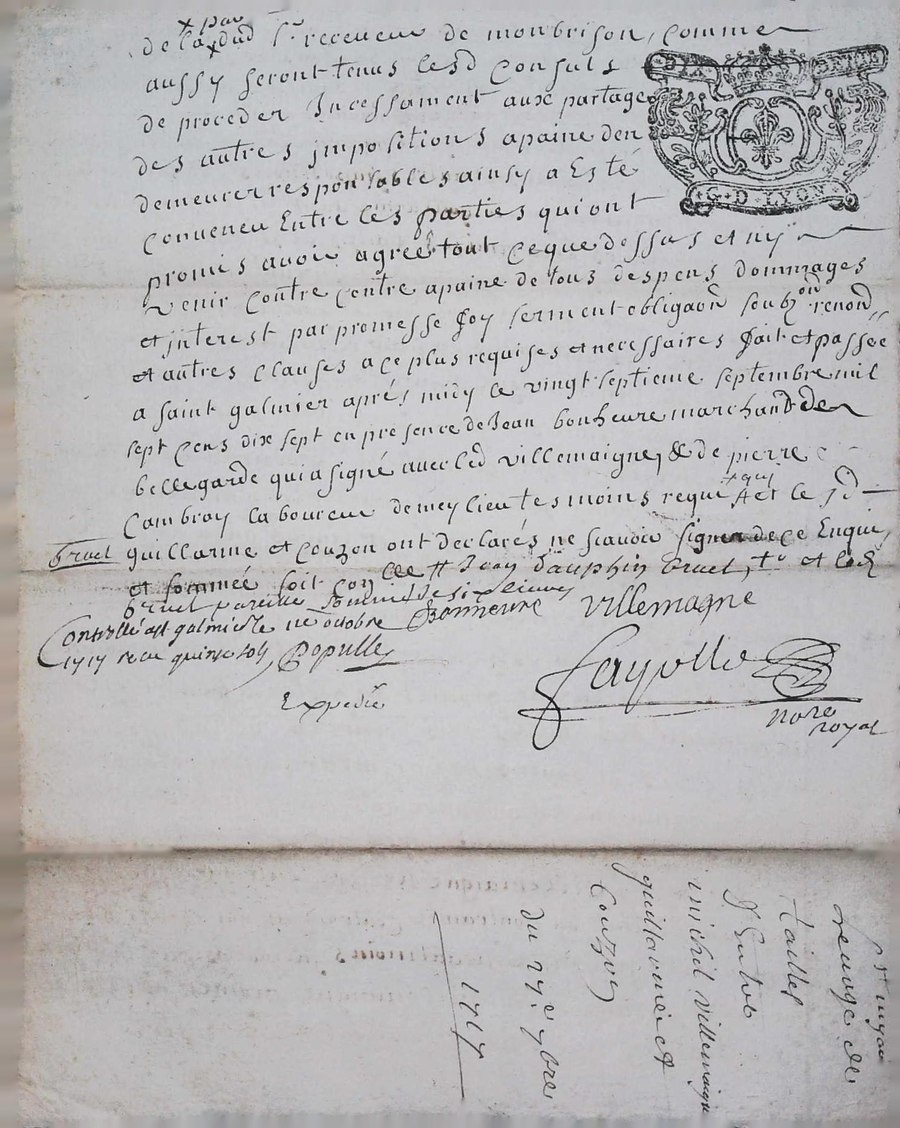 x par
de la x dud Sr receveur de monbrison, comme
aussy seront tenus lesd Consuls
de proceder Incessament aux partage
des autres jmpositions apaine den
demeurer responsables ainsy a Esté
Conveneu Entre les parties qui ont
promis avoir agreé tout ceque dessus et ny
venir contre apaine de tous despens dommages
et jnterest par promesse foy serment obligaon soubzon renond
et autres clauses a ce plus requises et necessaires fait et passée
a saint galmier aprés midy le vingt septieme septembre mil
sept cens dix sept en presence de Jean bonheure marchand de
bellegarde qui a signé avec led villemaigne, & de pierre
Cambray laboureur de meylieu tesmoins requi + et le sd
+ qui
guillarme et Couzon ont declarés ne scavoir signer de ce Enquis
bruel
et sommée soit con lle # Jean dauphin bruel, to et led
bruel pareille
Controllé a st galmier le ne octobre
1717 receu quinze sols Populle
Bonneure
villemagne
fayolle
Expedie
nore
royal
G · D · LYON
Leuage de
taillef
d'Entre
michel villemaigne
guillaume et
Couzon
du 27e 7bre
1717